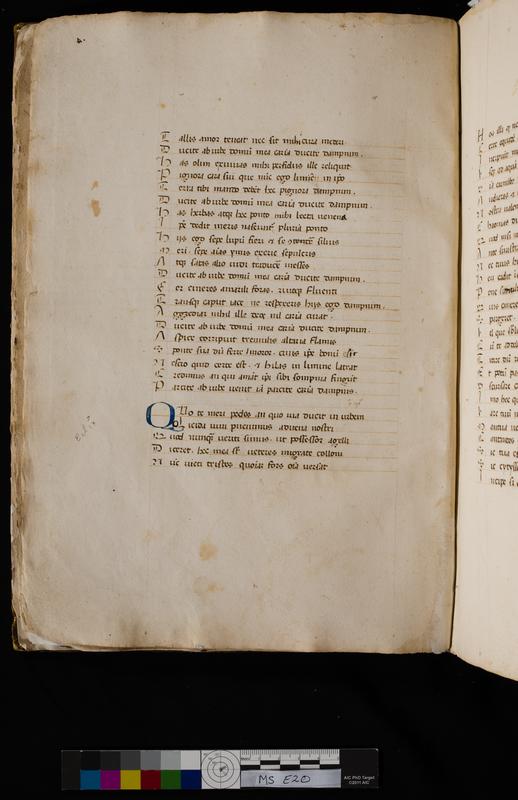 Tallis amor teneat nec sit mihi cura mederi
Ducite ab urbe domū mea carīa ducite dampnim.
Has olim exuvias mihi perfidus ille reliquit
Pignora cara sui que nūc ego limine in ipō
Terra tibi mando debēt hec pignora dampnim.
Ducite ab urbe domū mea carīa ducite dampnim.
Has herbas atqȝ hec ponto mihi lecta venena
Ipē dedit meris nascunt̄ pluria ponto
Hiis ego sepe lupū fieri & se cōdere silvis
Meri. sepe aīas ymis excire sepulcris
Atqȝ satas alio vidi traducēe messes
Ducite ab urbe domū mea carīa ducite dampnim.
Fer cineres amarilli foras. rivoqȝ fluenti
Transqȝ caput iace. ne respexeris hiis ego dampnim.
Aggrediar nihil ille deos nil carīa curat.
Ducite ab urbe domū mea carīa ducite dampnim.
Aspice corripuit tremulis altaria flamis
Sponte sua dū ferre moror. cinis ipē bonū sit
Nescio quid certe est. & hilas in limine latrat
Credimus an qui amāt ipī sibi sompnia fingūt
Parcite ab urbe venit iā parcite carīa dampnis.
QUo te meri pedes an quo via ducit in urbem
O licida vivi pvenimus advena nostri
Quod nunqȝ veriti sumus. ut possessor agelli
Diceret. hec mea st̄. veteres migrate coloni
Nūc victi tristes quoniā fors oīa versat
MS E20
AIC PhD Target
©2011 AIC